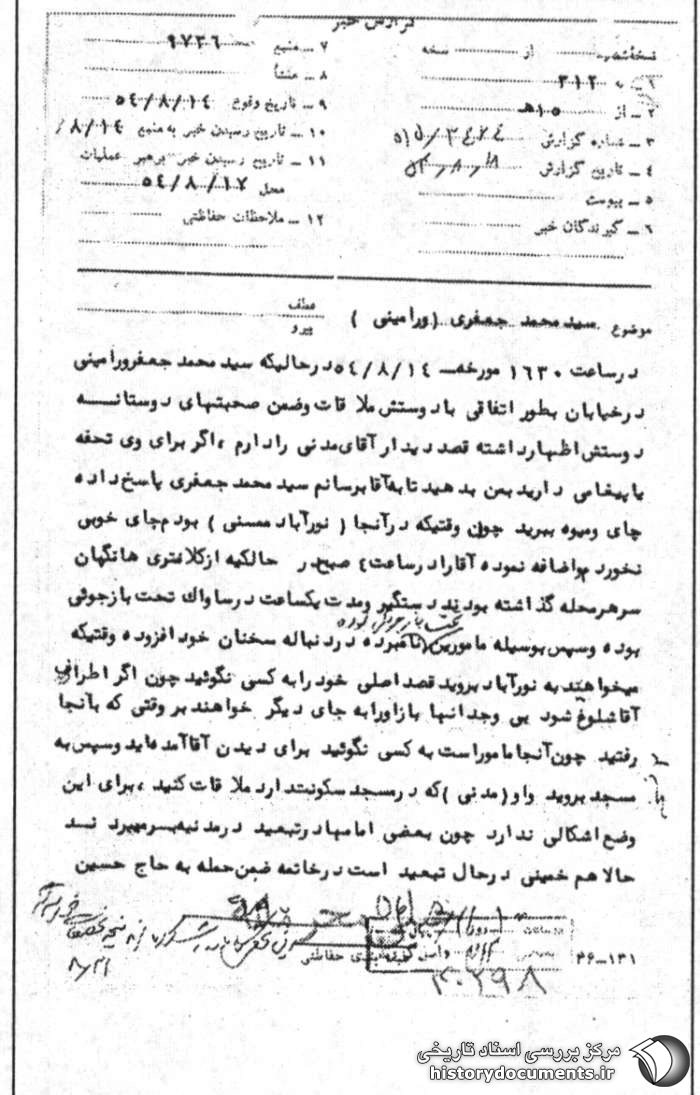 گزارش خبر
نسخه شماره از نسخه
۱ ـ به ۳۱۲
۲ ـ از ۱۵ ه‍
۳ ـ شماره گزارش
۴ ـ تاریخ گزارش
۵ ـ پیوست
۶ ـ گیرندگان خبر
۷ ـ منبع ۹۷۳۶
۸ ـ منشأ
۹ ـ تاریخ وقوع ۵٤/۸/۱٤
۱۰ ـ تاریخ رسیدن خبر به منبع ۸/۱٤/
۱۱ ـ تاریخ رسیدن خبر برهبر عملیات
محل ۵٤/۸/۱۷
۱۲ ـ ملاحظات حفاظتی
موضوع سید محمد جعفری (ورامینی )
عطف
پیرو
در ساعت ۱٦۳۰ مورخه ۵٤/۸/۱٤ در حالیکه سید محمد جعفر ورامینی
در خیابان بطور اتفاقی با دوستش ملاقات وضمن صحبتهای دوستانه
دوستش اظهار داشته قصد دیدار آقای مدنی را دارم ، اگر برای وی تحفه
یا پیغامی دارید بمن بدهید تا به آقا برسانم سید محمد جعفری پاسخ داده
چای ومیوه ببرید چون وقتیکه در آنجا ( نورآباد ممسنی ) بودم چای خوبی
نخوردم واضافه نموده آقا را در ساعت ٤ صبح در حالکیه از کلانتری هانگهان
سر هر محله گذاشته بودند دستگیر ومدت یکساعت در ساواک تحت بازجوئی
بوده وسپس بوسیله مامورین نامبرده در دنباله سخنان خود افزوده وقتیکه
میخواهند به نورآباد بروید قصد اصلی خود را به کسی نگوئید چون اگر اطراف
آقا شلوغ شود بی وجدانها باز او را به جای دیگر خواهند بر وقتی که بآنجا
رفتید چون آنجا مامور است به کسی نگوئید برای دیدن آقا آمده‌اید وسپس به
مسجد بروید واو ( مدنی ) که در مسجد سکونت دارد ملاقات کنید ، برای این
وضع اشکالی ندارد چون بعضی امامها در تبعید در مدنیه بسر میبردند
حالا هم خمینی در حال تبعید است در خاتمه ضمن حمله به حاج حسین
طبقه بندی حفاظتی
۳٦ــ۱۳۱
۴۰۲۹۸
۸/۲۱
مرکز بررسی اسناد تاریخی
historydocuments.ir